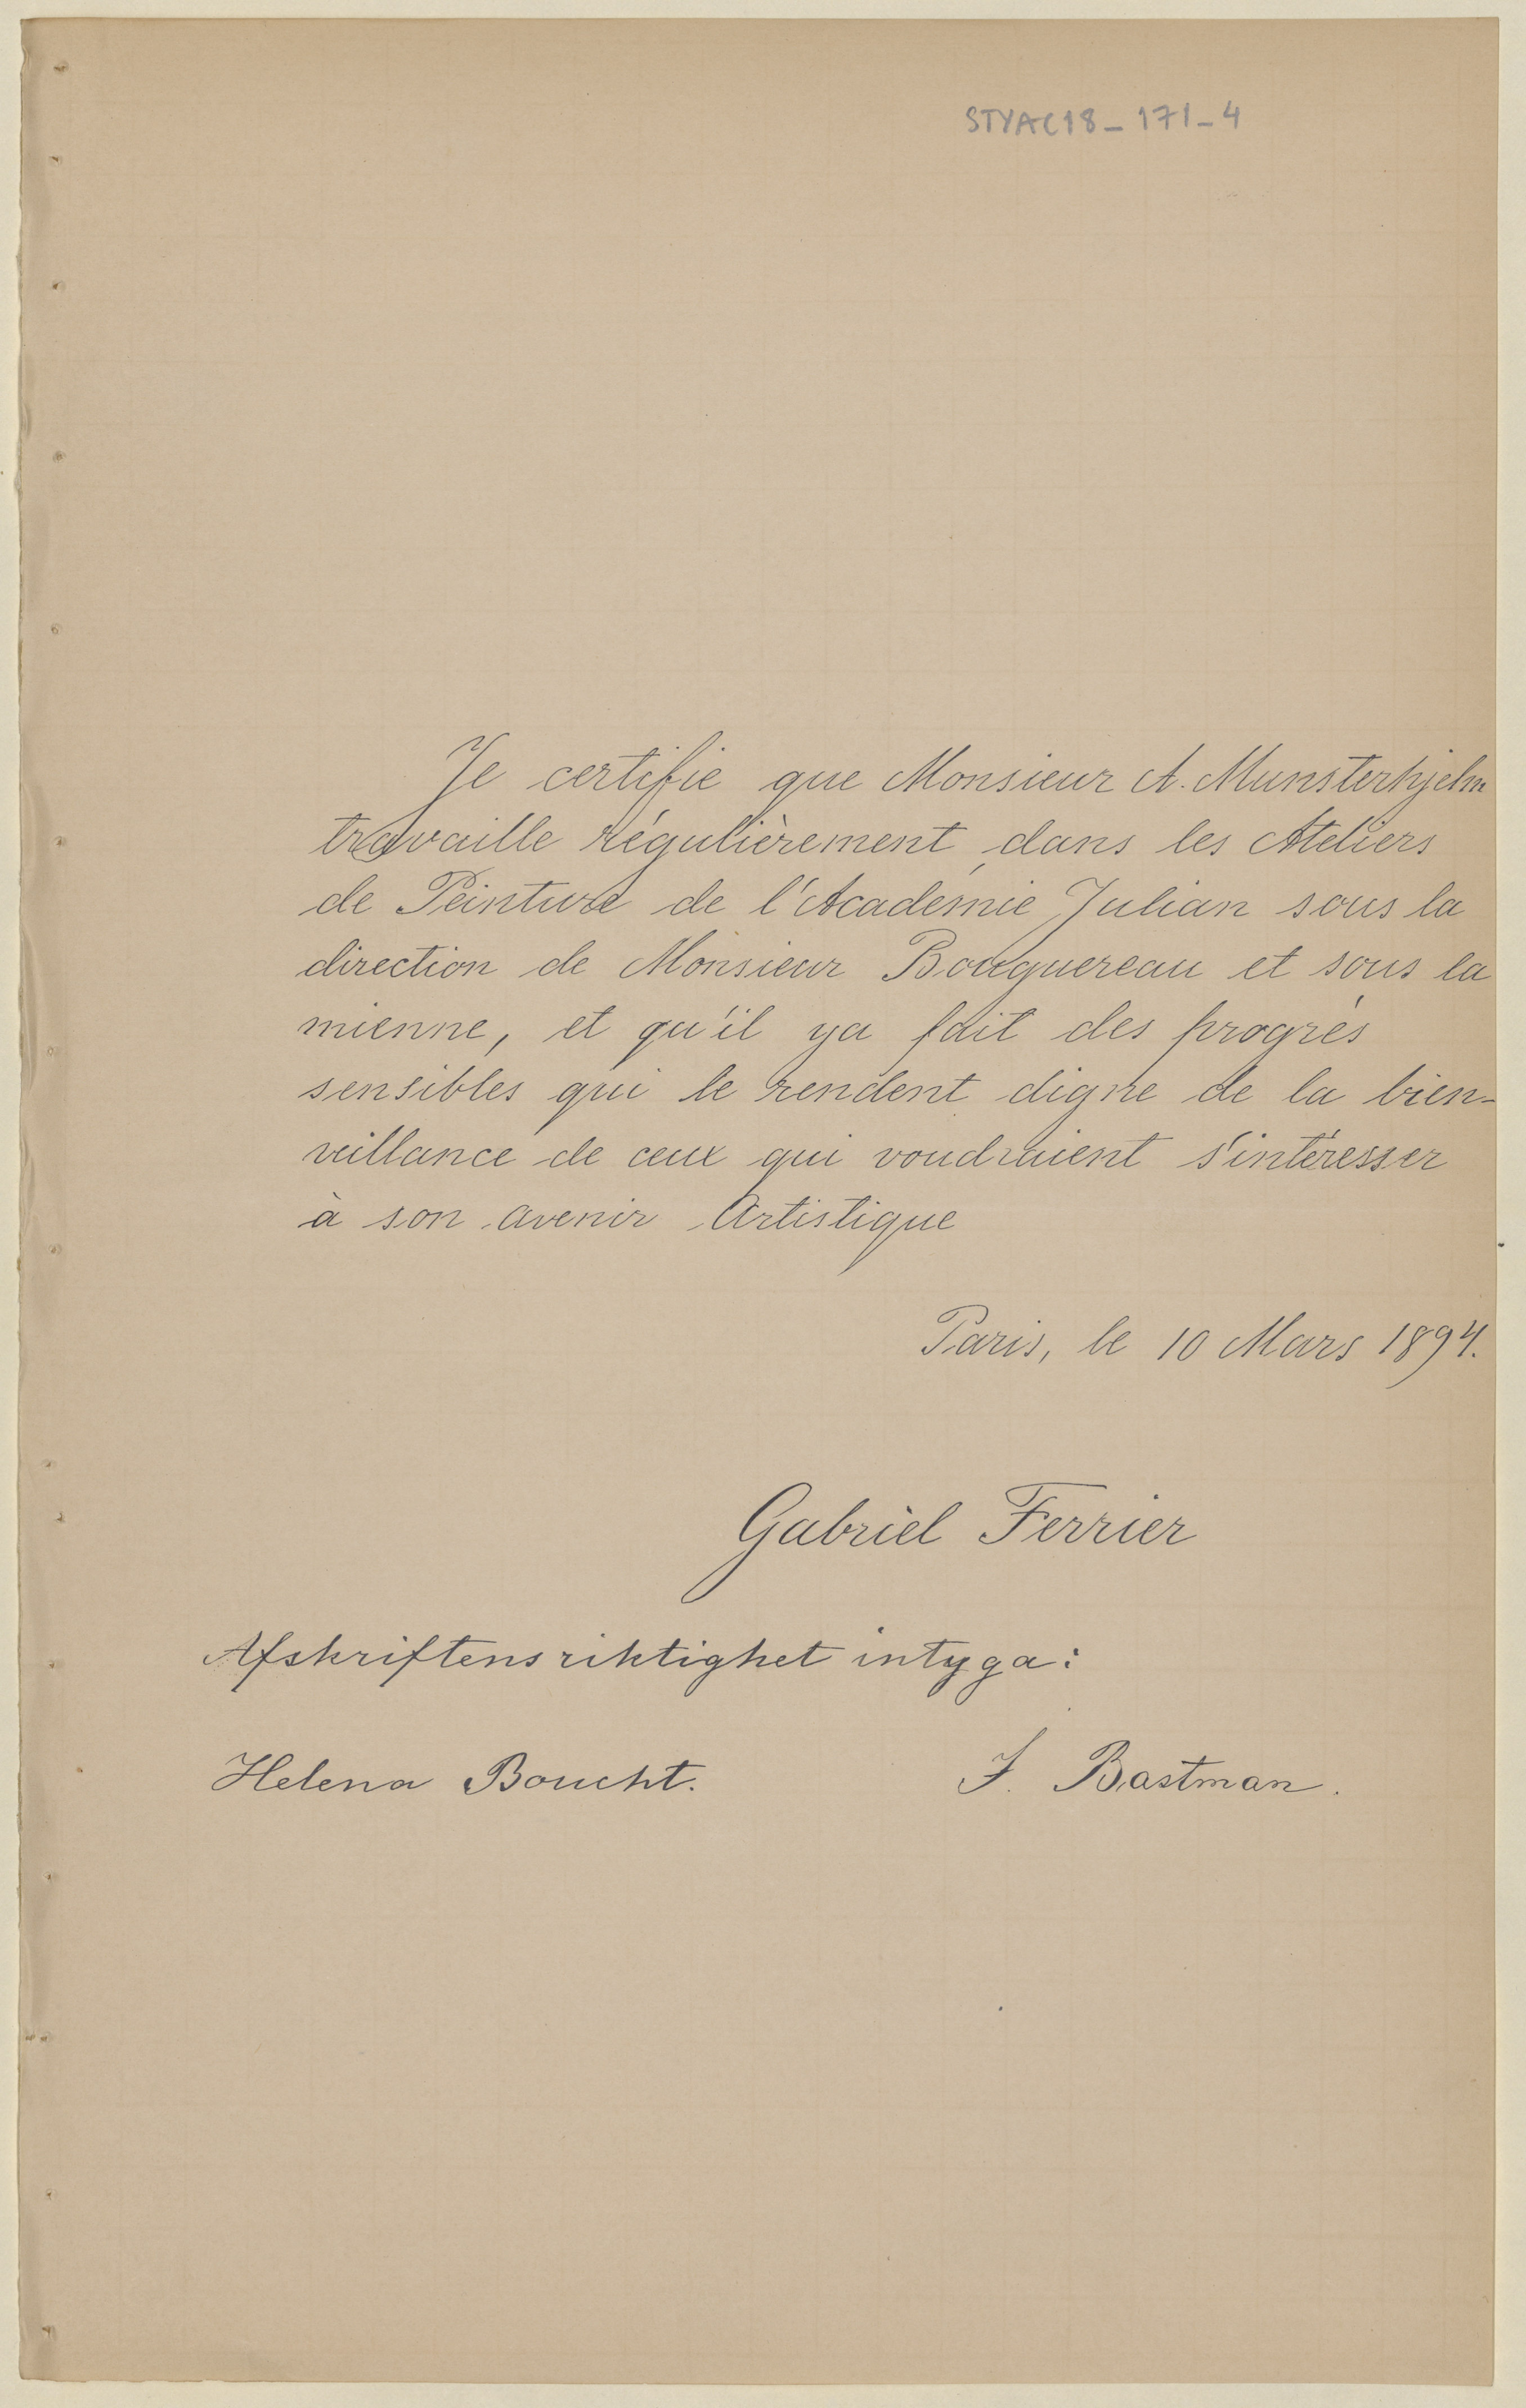 STYAC18_171_4
Je certifie que Monsieur A. Munsterhjelm
travaille régulièrement dans les Ateliers
de Peinture de l'Academie Julian sous la
direction de Monsieur Bouguereau et sous la
mienne, et qu'il ya fait des progrès
sensibles qui le rendent digne de la bien-
veillance de ceux qui voudraient s'intéresser
à son avenir Artistique
Paris, le 10 Mars 1894.
Gabriel Ferrier
Afskriftens riktighet intyga:
Helena Boucht. J. Bastman.